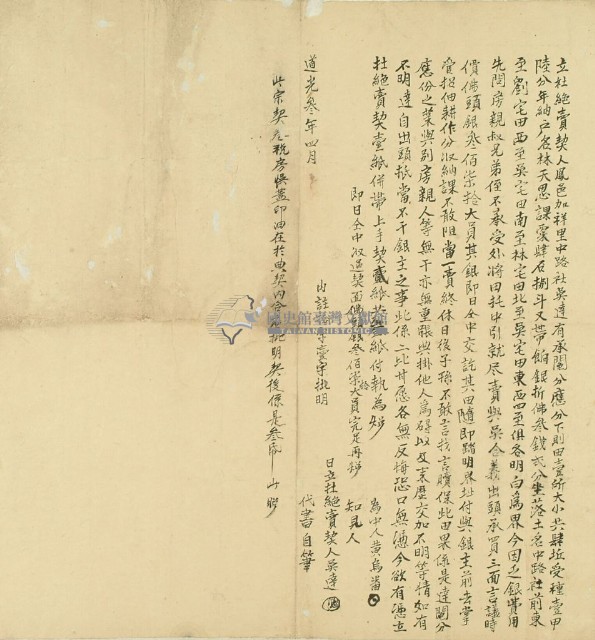 立杜絕賣契人鳳邑加祥里中路社吳達有承鬮分應分下則田壹所大小共肆坵受種壹甲
陸分年納戶名林天思課粟肆石捌斗又帶餉銀折佛叁錢弍分坐落土名中路社前東
至劉宅田西至吳宅田南至林宅田北至吳宅田東西四至俱各明白為界今因乏銀費用
先問房親叔兄弟侄不承受外將田托中引就尽賣與吳合義出頭承買三面言議時
價佛頭銀叁佰柒拾大員其銀即日仝中交訖其田隨即踏明界址付與銀主前去掌
管招佃耕作分收納課不敢阻當一賣終休日後子孫不敢言找言贖保此田果係是達鬮分
應份之業與別房親人等無干亦無重張典掛他人為碍以及來歷交加不明等情如有
不明達自出頭抵當不干銀主之事此係二比甘愿各無反悔恐口無憑今欲有憑立
杜絕賣契壹紙併帶上手契貳紙共 紙付執為炤
即日仝中收過契面佛 銀叁佰柒拾大員完足再炤
內註 字壹字批明
為中人黃烏番
知見人
道光叁年四月 日立杜絕賣契人吳達
代書自筆
此宗契尾稅房悞蓋印油在於典契內合 批明契後係是叁 炤
國史館臺灣文獻館
TAIWAN HISTORICA